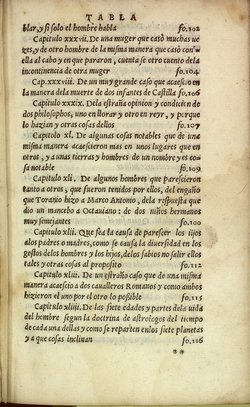 TABLA
blar, y si solo el hombre habla fo,102
Capitulo xxxvii. De una muger que casò muchas ve
zes, y de otro hombre de la misma manera que casò con
ella al cabo y en que pararon, cuenta se otro cuento dela
incontinencia de otra muger fo,104
Cap. xxxviii. De un muy grande caso que acaescio en
la manera dela muerte de dos infantes de Castilla fo,106
Capitulo xxxix. Dela estraña opinion y condicion de
dos philosophos, uno en llorar y otro en reyr, y porque
lo hazian y otras cosas dellos fo,107
Capitulo xl. De algunas cosas notables que de una
misma manera acaescieron mas en unos lugares que en
otros, y a unas tierras y hombres de un nombre y es co-
sa notable fo,109
Capitulo xli. De algunos hombres que parescieron
tanto a otros, que fueron tenidos por ellos, del engaño
que Toranio hizo a Marco Antonio, dela respuesta que
dio un mancebo a Octaviano y de dos niños hermanos
muy semejantes fo,100
Capitulo xlii. Que sea la causa de parescer los hijos
alos padres o madres, como se causa la diversidad en los
gestos delos hombres y los hijos, delos sabios no salir ellos
tales y otras cosas al proposito fo,112
Capitulo xliii. De un estraño caso que de una misma
manera acaescio a dos cavalleros Romanos y como ambos
hizieron el uno por el otro lo possible fo,115
Capitulo xliiii. De las siete edades y partes dela vida
del hombre segun la doctrina de astrologos del tiempo
de cada una dellas y como se reparten enlos siete planetas
y a que cosas inclinan fo,116
**